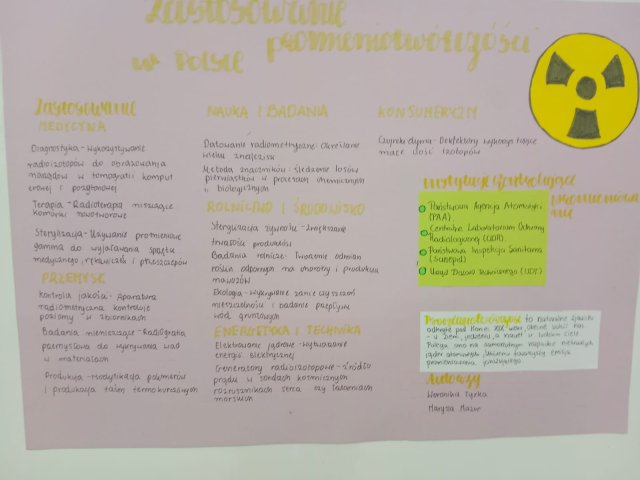 Zastosowanie
promieniotwórczości
w Polsce
Zastosowanie
MEDYCYNA
Diagnostyka-Wykorzystywanie
radioizotopów do obrazowania
narządów w tomografii komput
erowej i pozytonowej
Terapia - Radioterapia niszcząca
komórki nowotworowe
Sterylizacja-Używanie promieniowe
gamma do wyjaławiania sprzętu
medycznego, rękawiczek i przeszczepów
PRZEMYSŁ
Kontrola jakości- Aparatura
radiometryczna kontroluje
poziomy w zbiornikach
Badania nieniszczące-Radiografia
przemysłowa do wykrywania wad
w materiałach
Produkcja -Modyfikacja polimerów
i produkcja taśm termokurczliwych
NAUKA I BADANIA
Datowanie radiometryczne: Określanie
wieku znalezisk
Metoda znaczników: śledzenie losów
pierwiastków w procesach chemicznych
i biologicznych
ROLNICTWO I ŚRODOWISKO
Sterylizacja żywności - Zwiększanie
trwałości produktów
Badania rolnicze- Tworzenie odmian
roślin odpornych na choroby i produkcja
nawozów
Ekologia-Wykrywanie zanieczyszczeń
i badanie przepływu
wód gruntowych
ENERGETYKA I TECHNIKA
Elektrownie jądrowe -Wytwarzanie
energii elektrycznej
Generatory radioizotopowe - źródło
prądu w sondach kosmicznych
rozrusznikach serca czy latarniach
morskich
KONSUMERYZM
Czujniki dymu- Detektory wykorzystujące
małe ilość izotopów
Instytucje kontrolujące
Państwowa Agencja Atomistyki
(PAA)
Centralne Laboratorium Ochrony
Radiologicznej (CLOR)
Państwowa Inspekcja Sanitarna
(Sanepid)
Urząd Dozoru Technicznego (UDT)
Promieniotwórczość to naturalne zjawisko
odkryte pod koniec XIX wieku, obecne wokół nas
- w Ziemi, jedzeniu, a nawet w ludzkim ciele.
Polega ono na samorzutnym rozpadzie nietrwałych
jąder atomowych, któremu towarzyszy emisja
promieniowania jonizującego.
Autorzy
Weronika
Maryna Mazur